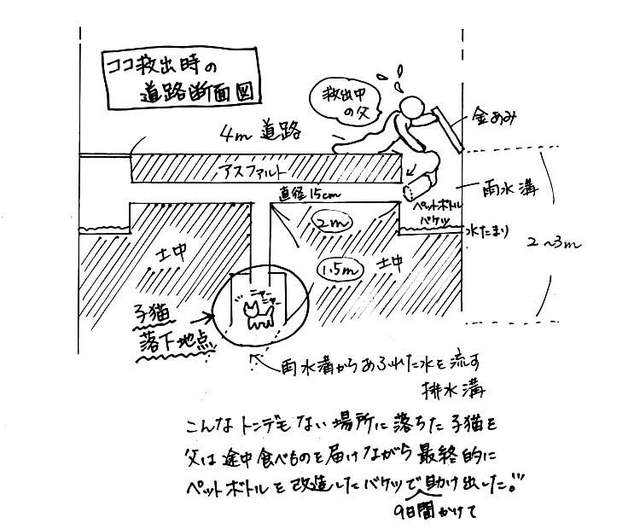 ココ救出時の
道路断面図
救出中
の父
金あみ
4m 道路
アスファルト
直径15cm
雨水溝
ペットボトル
バケツ
水たまり
2m
2~3m
土中
1.5m
土中
ニャー
ニャー
子猫
落下地点
雨水溝からあふれた水を流す
排水溝
こんなトンデモない場所に落ちた子猫を
父は途中食べものを届けながら最終的に
ペットボトルを改造したバケツで助け出した。
9日間かけて